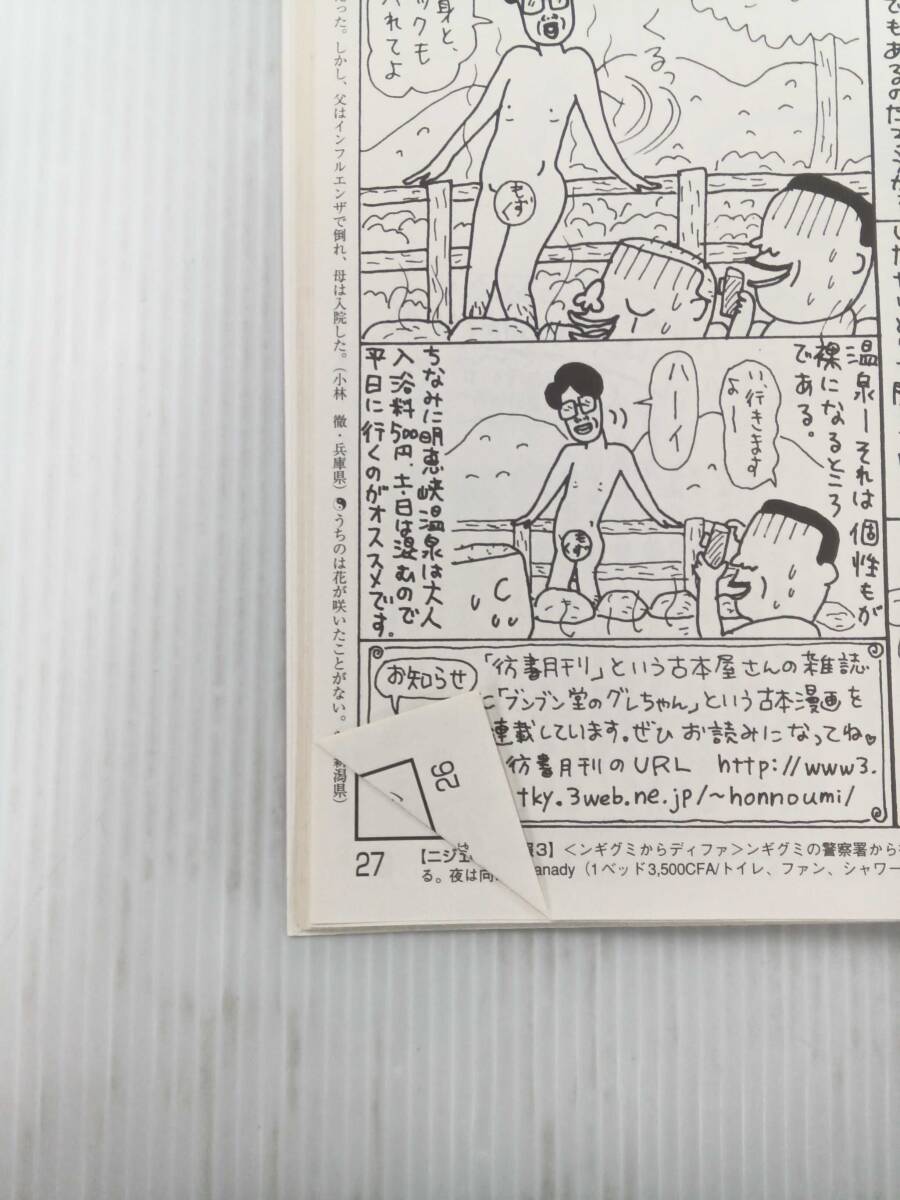 身と、
ックも
れてよ
くる。
もずく
でもあるのだ
温泉ーそれは個性もが
裸になるところ
である。
い、行きます
よー
ハーイ
もずく
ちなみに明恵峡温泉は大人
入浴料500円、土・日は混むので
平日に行くのがオススメです。
お知らせ
「彷書月刊」という古本屋さんの雑誌
に「ブンブン堂のグレちゃん」という古本漫画を
連載しています。ぜひお読みになってね♡
彷書月刊のURL http://www3.
tky.3web.ne.jp/~honnoumi/
26
った。しかし、父はインフルエンザで倒れ、母は入院した。(小林 徹・兵庫県)☯うちのは花が咲いたことがない。
新潟県)
27
【ニジェ
3】<ンギグミからディファ>ンギグミの警察署から
る。夜は向
anady(1ベッド3,500CFA/トイレ、ファン、シャワー